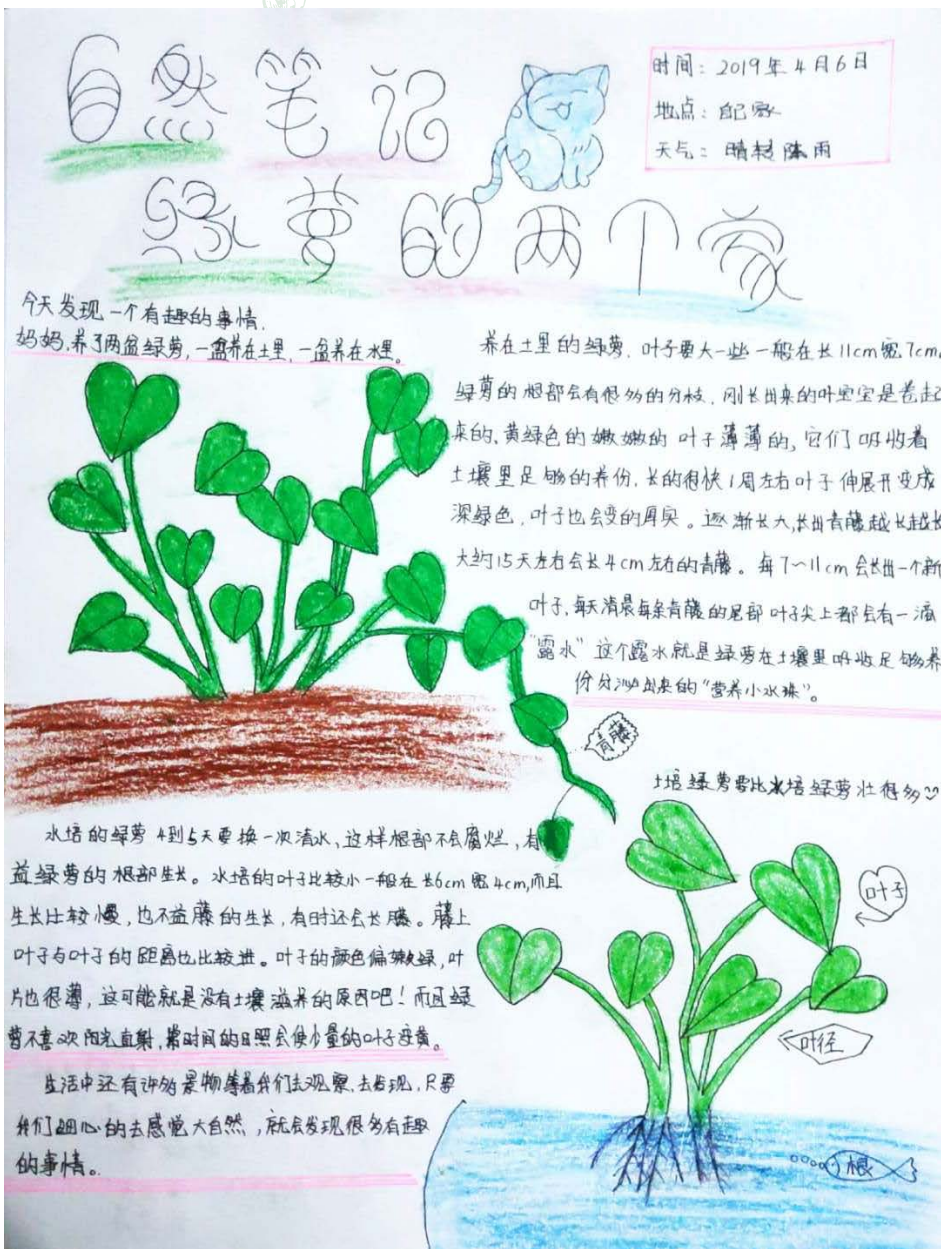 自然笔记
绿萝的两个家
时间：2019年4月6日
地点：自己家
天气：晴转阵雨
今天发现一个有趣的事情.
妈妈养了两盆绿萝,一盆养在土里,一盆养在水里。
养在土里的绿萝，叶子要大一些一般在长11cm宽7cm,
绿萝的根部会有很多的分枝，刚长出来的叶宝宝是卷起
来的、黄绿色的嫩嫩的叶子薄薄的,它们吸收着
土壤里足够的养份,长的很快1周左右叶子伸展开变成
深绿色，叶子也会变的厚实。逐渐长大,长出青藤越长越长
大约15天左右会长4cm左右的青藤。每7~11cm会长出一个新
叶子,每天清晨每条青藤的尾部叶子尖上都会有一滴
"露水"这个露水就是绿萝在土壤里吸收足够养
份分泌出来的"营养小水珠"。
青藤
土培绿萝要比水培绿萝壮很多
水培的绿萝4到5天要换一次清水,这样根部不会腐烂,有
益绿萝的根部生长。水培的叶子比较小一般在长6cm宽4cm,而且
生长比较慢,也不益藤的生长,有时还会长藤。藤上
叶子与叶子的距离也比较进。叶子的颜色偏嫩绿,叶
片也很薄,这可能就是没有土壤滋养的原因吧!而且绿
萝不喜欢阳光直射,常时间的日照会使少量的叶子变黄。
生活中还有许多景物等着我们去观察、去发现,只要
我们细心的去感觉大自然,就会发现很多有趣
的事情。
叶子
叶径
根